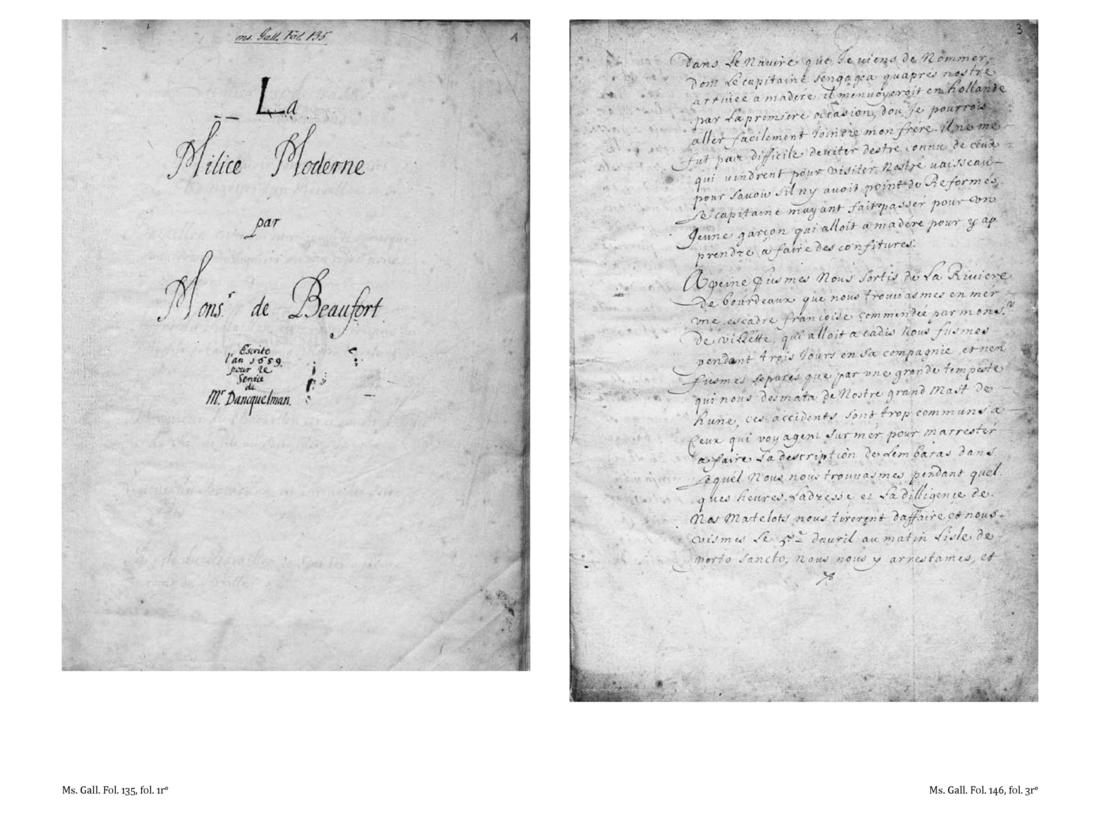 ms. Gall. Fol. 135
1
La
Milice Moderne
par
Monsr de Beaufort
Escrite
l'an 1689.
pour le
Service
de
Mr. Dancquelman.
3
dans Le Navire que Je viens de Nommer,
dont Le capitaine sengagea quapres nostre
arrivée a madere il menvoyeroit en hollande
par La premiere occasion, dou Je pourrois
aller facilement Joindre mon frere, il ne me
fut pas difficile deviter destre connu de ceux
qui vindrent pour visiter Nostre vaisseau
pour savoir sil ny avoit point de Reformés,
Le capitaine mayant fait passer pour vn
Jeune garçon qui alloit a madere pour y ap
prendre a faire des confitures.
Apeine fusmes Nous sortis de La Riviere
de bourdeaux que nous trouvasmes en mer
vne escadre francoise commendée par monsr
De villette, qui alloit a cadis Nous fusmes
pendant trois Jours en sa compagnie, et nen
fusmes separés que par vne grande tempeste
qui nous desmata de Nostre grand Mast de
hune, ces accidents sont trop communs a
Ceux qui voyagent sur mer pour marrester
a faire La description de Lembaras dans
Lequel Nous nous trouvasmes pendant quel
ques heures, Ladresse et La dilligence de
Nos Matelots nous tirerent daffaire et nous
vismes Le 5e davril au matin Lisle de
porto sancto, Nous nous y arrestames, et
Ms. Gall. Fol. 135, fol. 1rº
Ms. Gall. Fol. 146, fol. 3rº